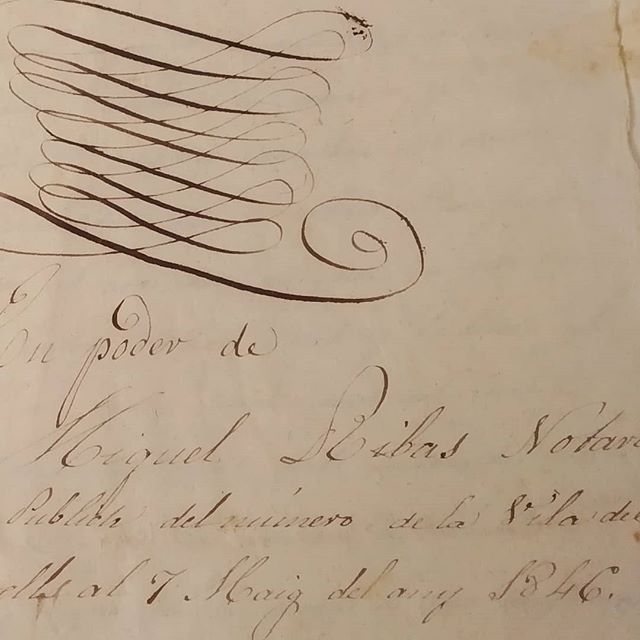 En poder de
Miguel Ribas Notari
Publich del número de la Vila de
olls al 7 Maig del any 1846.